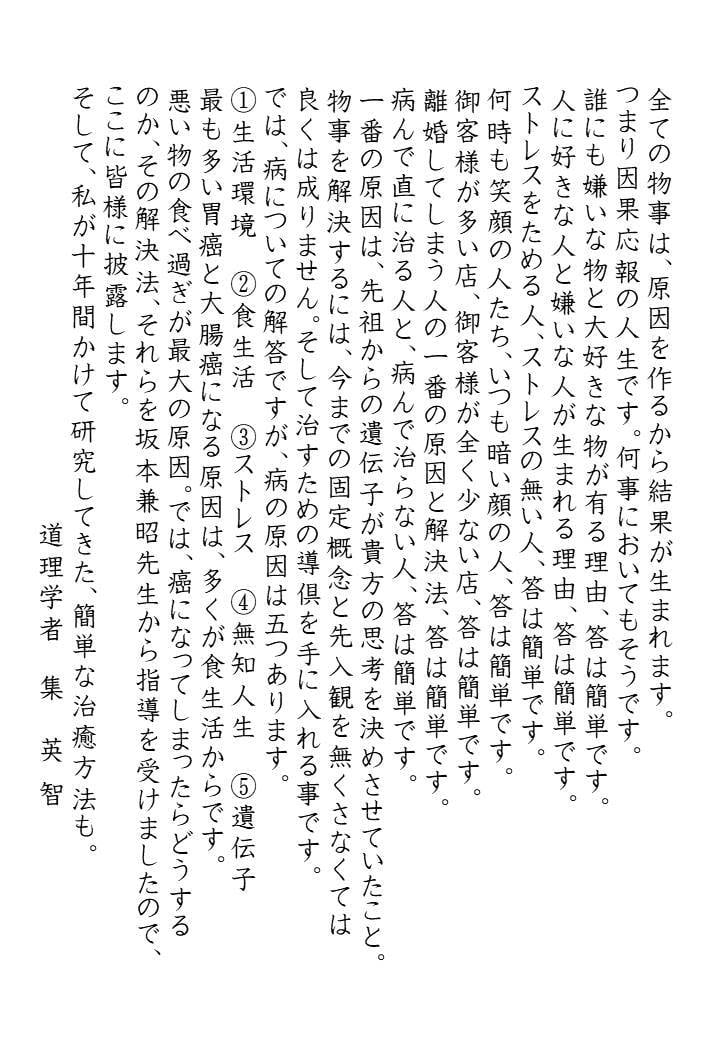 全ての物事は、原因を作るから結果が生まれます。
つまり因果応報の人生です。何事においてもそうです。
誰にも嫌いな物と大好きな物が有る理由、答は簡単です。
人に好きな人と嫌いな人が生まれる理由、答は簡単です。
ストレスをためる人、ストレスの無い人、答は簡単です。
何時も笑顔の人たち、いつも暗い顔の人、答は簡単です。
御客様が多い店、御客様が全く少ない店、答は簡単です。
離婚してしまう人の一番の原因と解決法、答は簡単です。
病んで直に治る人と、病んで治らない人、答は簡単です。
一番の原因は、先祖からの遺伝子が貴方の思考を決めさせていたこと。
物事を解決するには、今までの固定概念と先入観を無くさなくては
良くは成りません。そして治すための導倶を手に入れる事です。
では、病についての解答ですが、病の原因は五つあります。
①生活環境 ②食生活 ③ストレス ④無知人生 ⑤遺伝子
最も多い胃癌と大腸癌になる原因は、多くが食生活からです。
悪い物の食べ過ぎが最大の原因。では、癌になってしまったらどうする
のか、その解決法、それらを坂本兼昭先生から指導を受けましたので、
ここに皆様に披露します。
そして、私が十年間かけて研究してきた、簡単な治癒方法も。
道理学者 集 英智